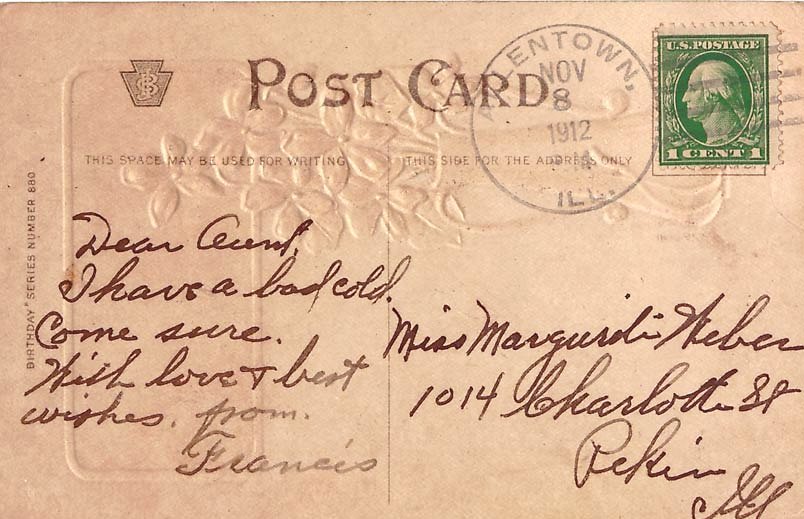 POST CARD
ALLENTOWN,
NOV
8
1912
ILL.
U.S. POSTAGE
1 CENT 1
THIS SPACE MAY BE USED FOR WRITING
THIS SIDE FOR THE ADDRESS ONLY
BIRTHDAY" SERIES NUMBER 880
Dear Aunt,
I have a bad cold.
Come sure.
With love & best
wishes. from.
Francis
Miss Margurite Weber
1014 Charlotte St
Pekin
Ill